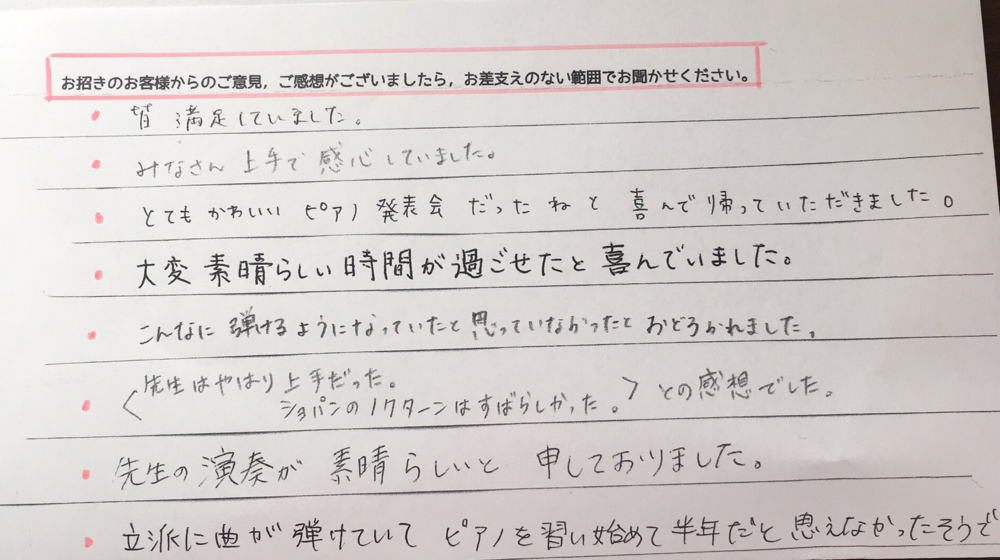 お招きのお客様からのご意見，ご感想がございましたら，お差支えのない範囲でお聞かせください。
・皆 満足していました。
・みなさん 上手で 感心していました。
・とても かわいい ピアノ 発表会 だったねと 喜んで帰っていただきました。
・大変 素晴らしい 時間が 過ごせたと 喜んでいました。
・こんなに 弾けるようになっていたと思っていなかったと おどろかれました。
・〈先生はやはり 上手だった。
ショパンのノクターンはすばらしかった。〉との感想でした。
・先生の演奏が 素晴らしいと 申しておりました。
・立派に曲が 弾けていて ピアノを習い始めて半年だと思えなかったそうで